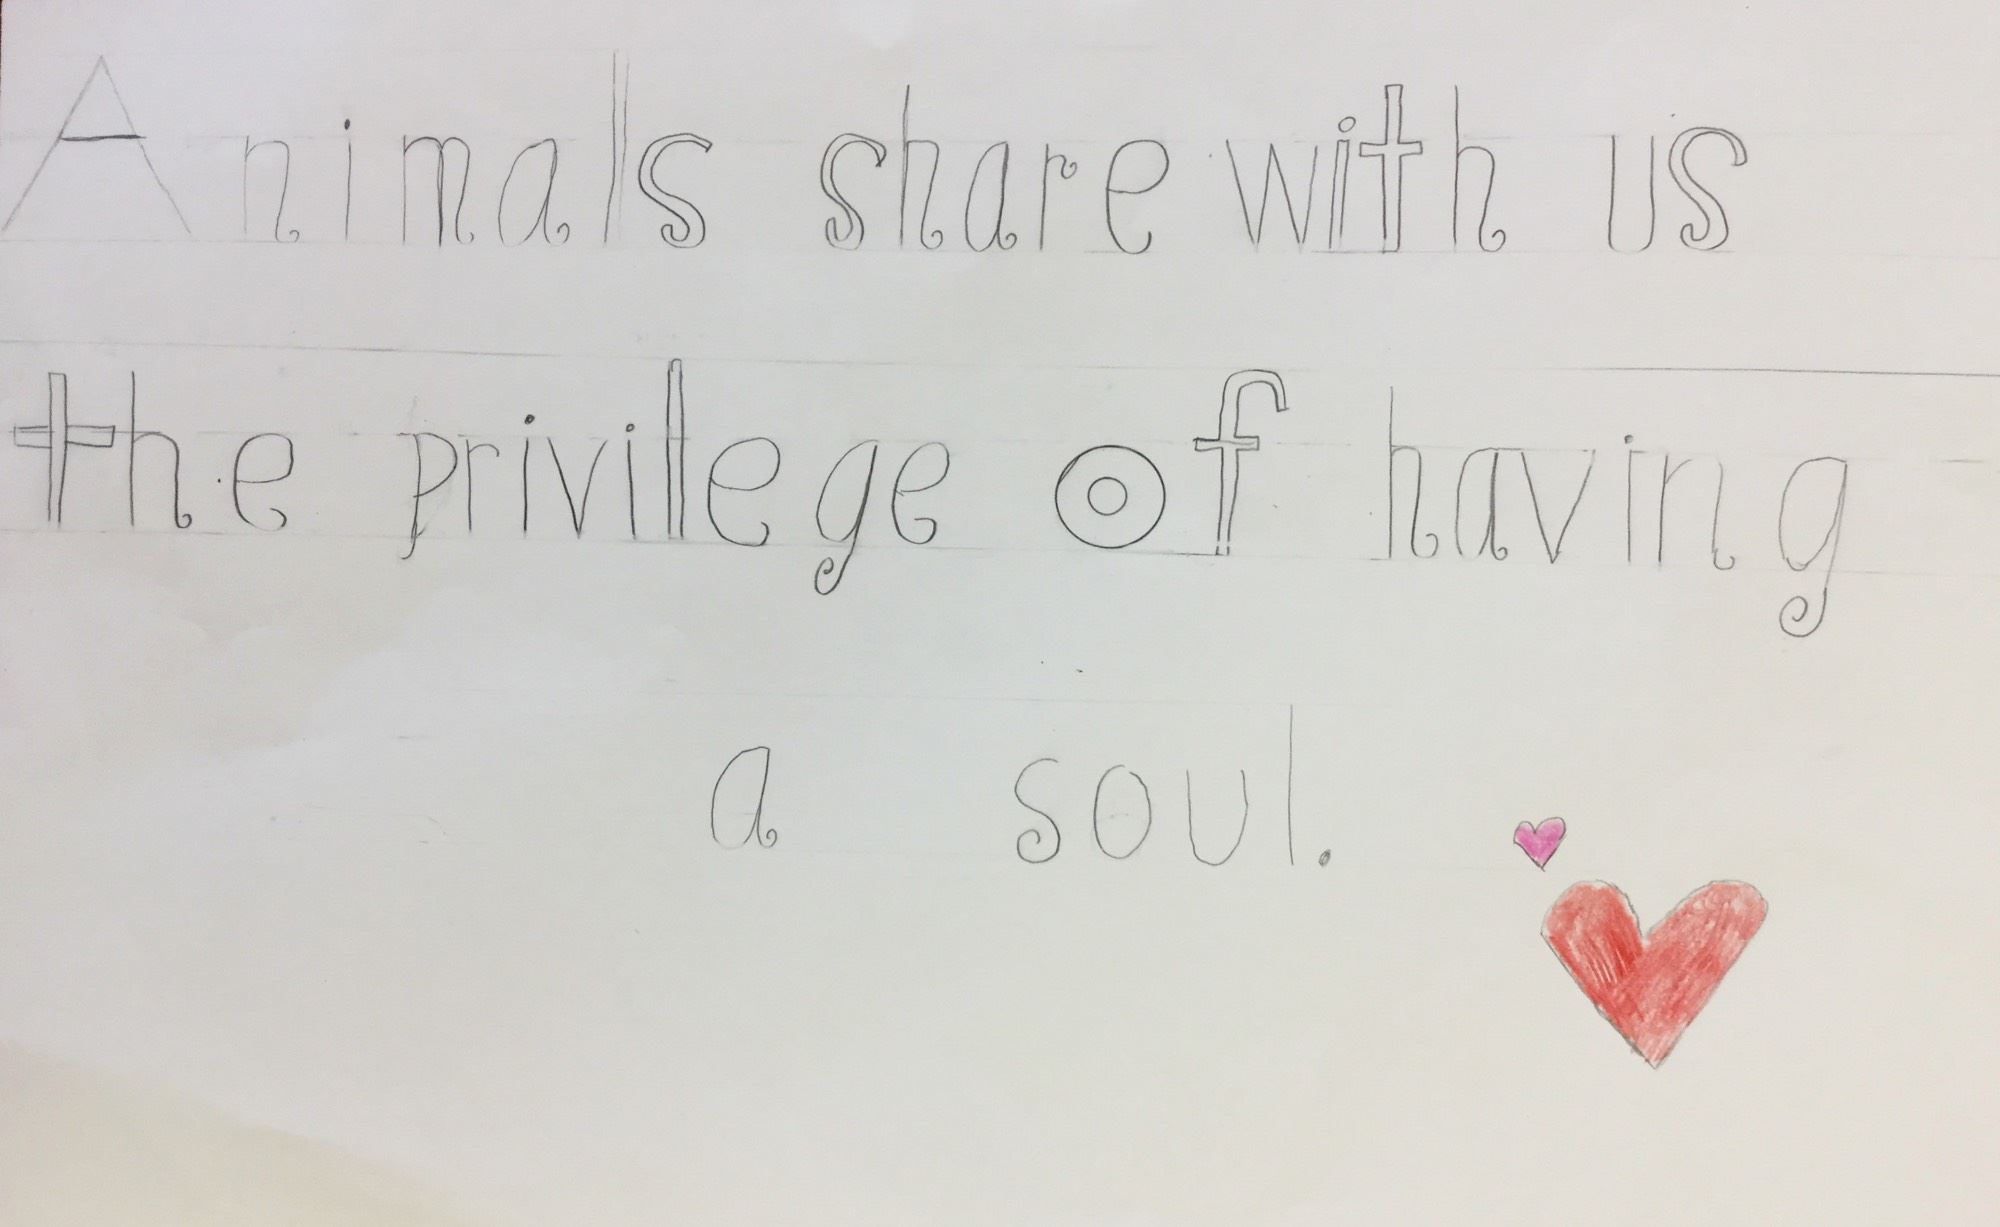 Animals share with us
the privilege of having
a soul.